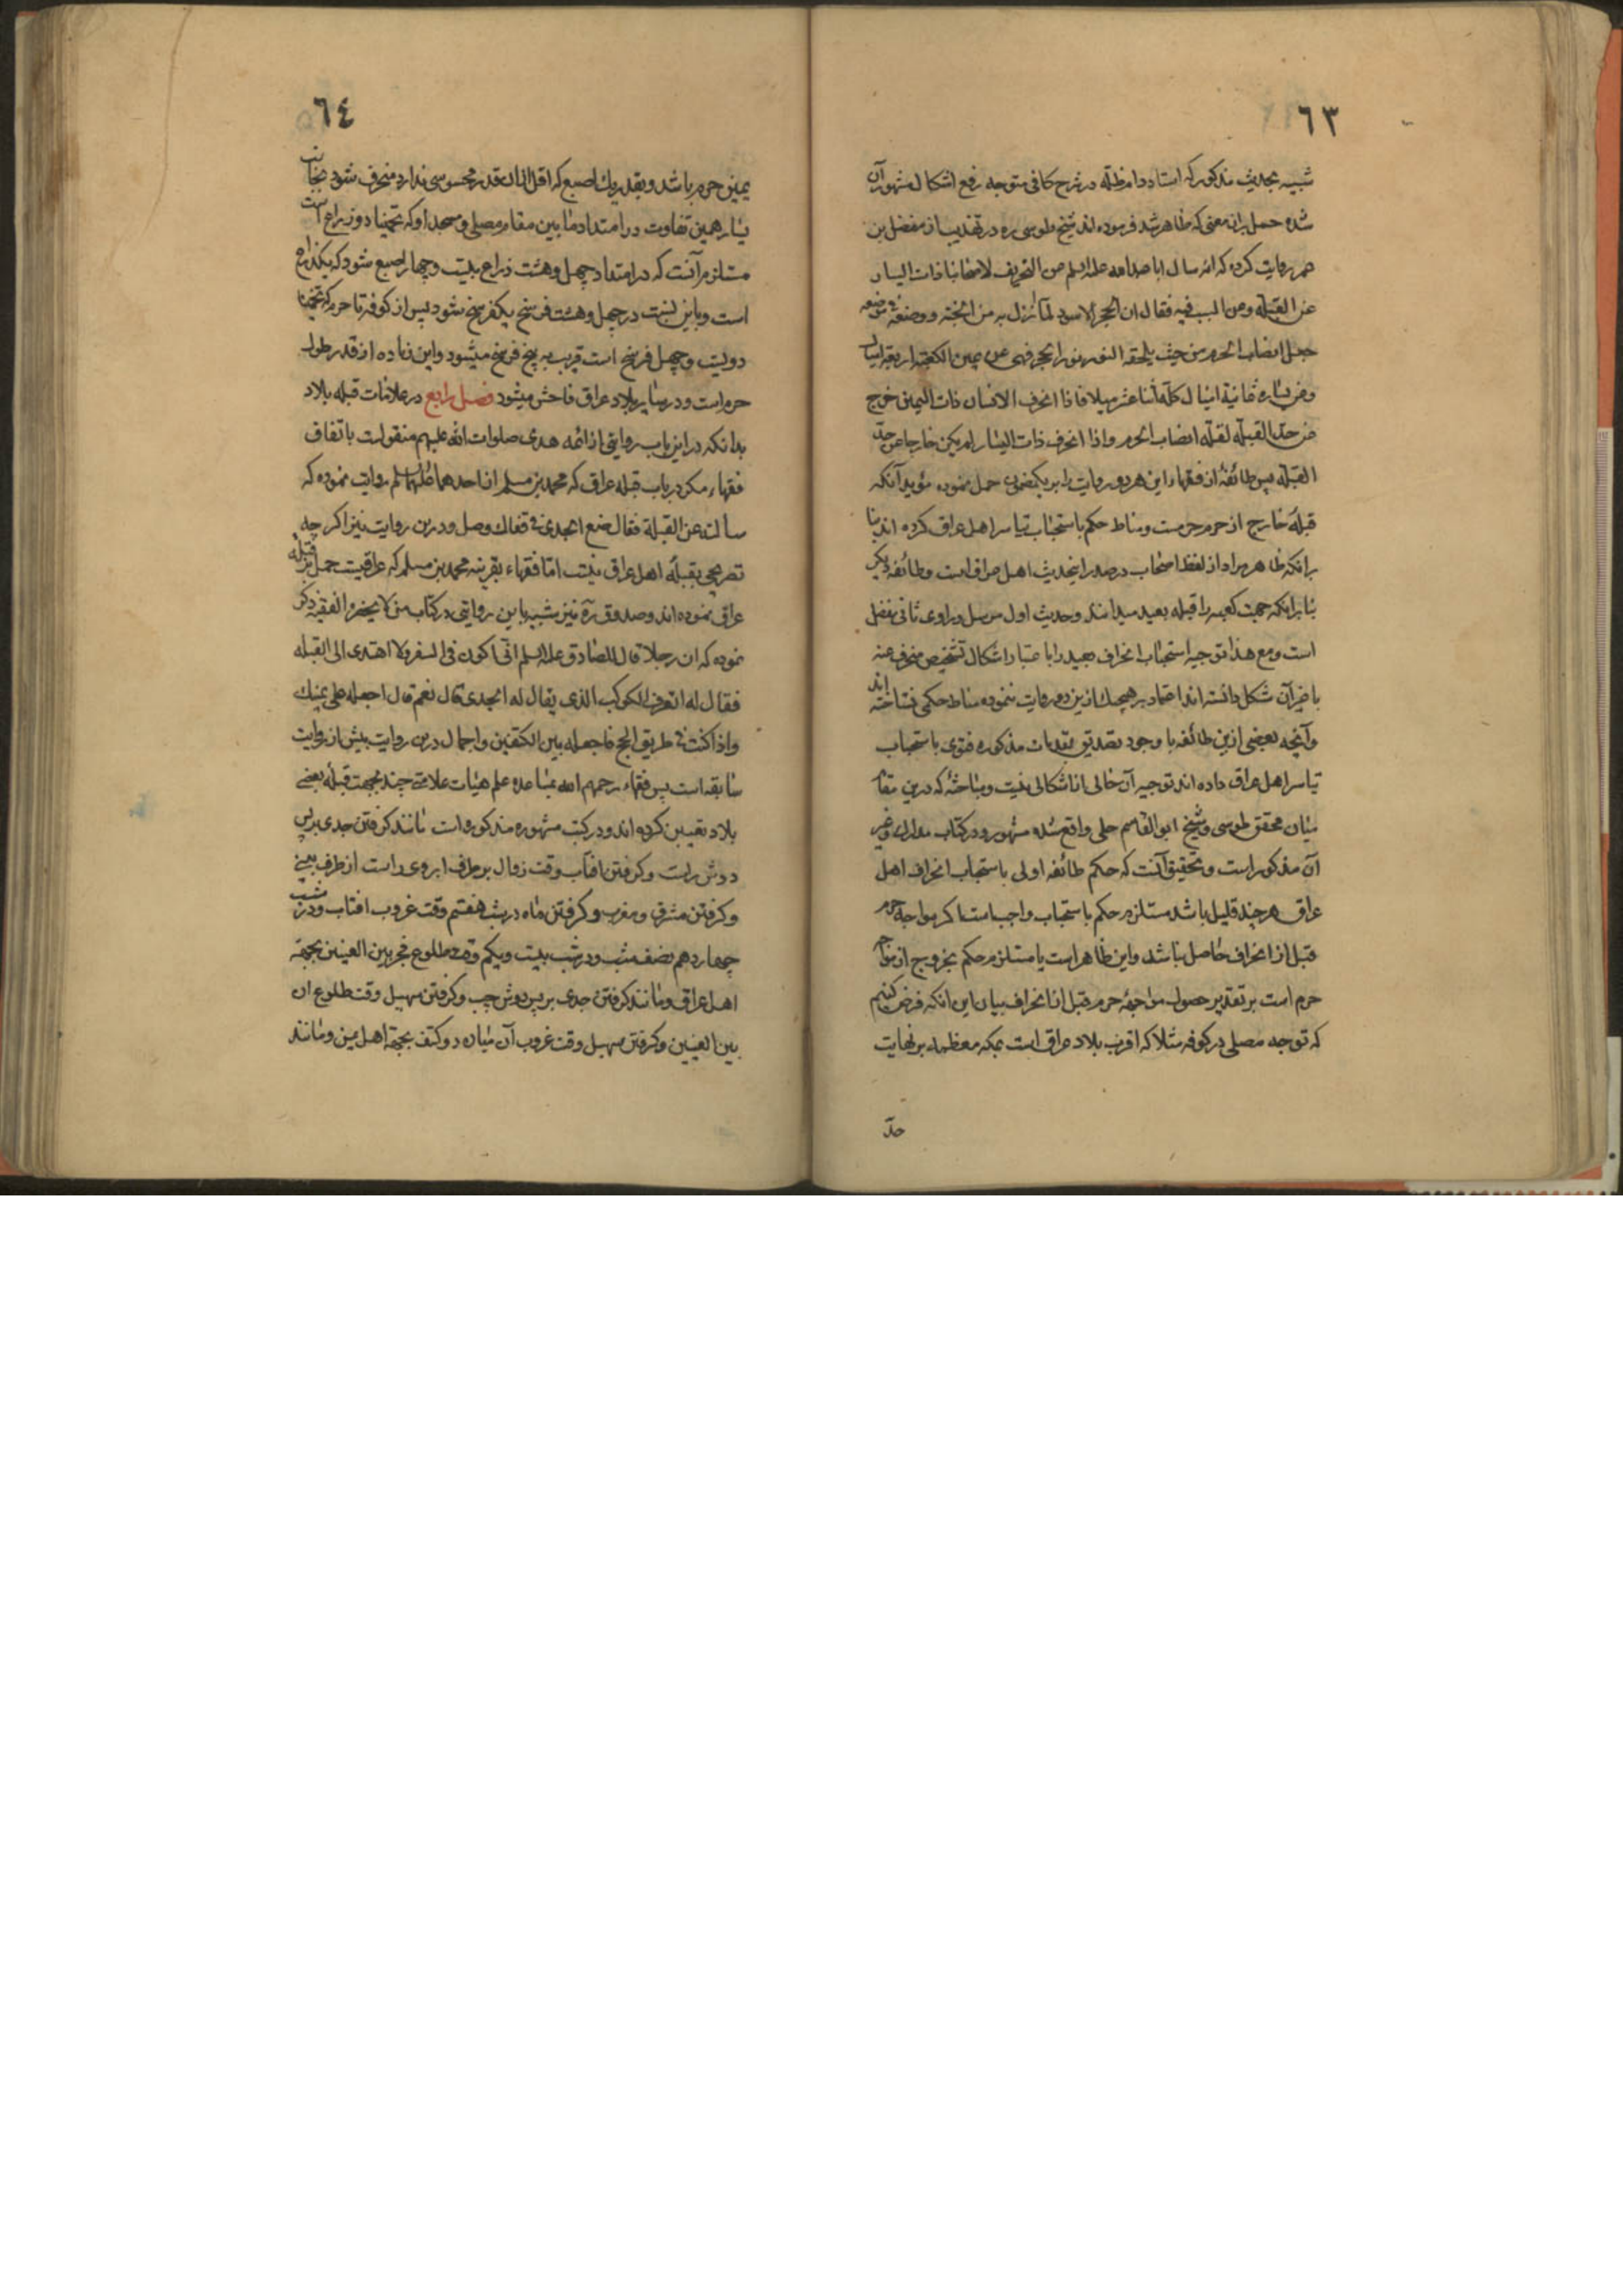 ٦٣
شبیه بحدیث مذکور که استاد دام ظله در شرح کافی متوجه رفع اشکال مشهور آن
شده حمل بران معنی که ظاهر شد فرموده اند شیخ طوسی ره در تهذیب از مفضل بن
عمر روایت کرده که انه سال ابا عبدالله علیه السلم عن التحریف لاصحابنا ذات الیسار
عن القبله وعن السبب فیه فقال ان الحجر الاسود لما انزل به من الجنة ووضع فی موضعه
جعل انصاب الحرم من حیث یلحقه النور نور الحجر فهی عن یمین الکعبة اربعة امیال
وعن یساره ثمانیة امیال کله اثنا عشر میلا فاذا انحرف الانسان ذات الیمین خرج
عن حد القبلة لقلة انصاب الحرم واذا انحرف ذات الیسار لم یکن خارجا عن حد
القبله پس طائفهٔ از فقها این هر دو روایت را بر یکمضمون حمل نموده مؤید آنکه
قبلهٔ خارج از حرم حرمست ومناط حکم باستحباب تیاسر اهل عراق کرده اند بنا
برانکه ظاهر مراد از لفظ اصحاب در صدر اینحدیث اهل عراق است وطائفه دیکر
بنابر اینکه جهت کعبه را قبله بعید میدانند وحدیث اول مرسل وراوی ثانی مفضل
است ومع هذا توجیه استحباب انحراف بعید را با عتبار اشکال تشخیص منحرف عنه
با غیر آن شکل دانسته اند اعتماد بر هیچیک ازین دو روایت ننموده مناط حکمی نساخته اند
وآنچه بعضی ازین طائفه با وجود تصدیق مقدمات مذکوره فتوی باستحباب
تیاسر اهل عراق داده اند توجیه آن خالی از اشکالی نیست ومباحثهٔ که درین مقام
میان محقق طوسی وشیخ ابوالقاسم حلی واقع شده مشهور ودر کتاب مدارک وغیر
آن مذکور است وتحقیق آنست که حکم طائفه اولی باستحباب انحراف اهل
عراق هر چند قلیل باشد مستلزم حکم باستحباب واجب است اکر مواجه حرم
قبل از انحراف حاصل نباشد واین ظاهر است یا مستلزم حکم بخروج از مواجهه
حرم است بر تقدیر حصول مواجههٔ حرم قبل از انحراف بیان این انکه فرض کنیم
که توجه مصلی در کوفه مثلا که اقرب بلاد عراق است بمکه معظمه بر نهایت
حد
٦٤
یمین حرم باشد وبقدر یک اصبع که اقل ازان قدر محسوسی ندارد منحرف شود بجانب
یسار همین تفاوت در امتداد مابین مقام مصلی ومسجد او که تخمینا دو ذراع است
مستلزم آنست که در امتداد چهل وهشت ذراع بیست وچهار اصبع شود که یکذراع
است وباین نسبت در چهل وهشت فرسخ یکفرسخ شود پس از کوفه تا حرم که تخمینا
دویست وچهل فرسخ است قریب به پنج فرسخ میشود واین زیاده از قدر طول
حرم است ودر سایر بلاد عراق فاحش میشود فصل رابع در علامات قبله بلاد
بدانکه دراین باب روایتی از ائمه هدی صلوات الله علیهم منقولست باتفاق
فقهاء مکر در باب قبله عراق که محمد بن مسلم از احدهما علیهما السلم روایت نموده که
سألته عن القبلة فقال ضع الجدی فی قفاک وصل ودرین روایت نیز اکر چه
تصریحی بقبلهٔ اهل عراق نیست اما فقهاء بقرینه محمد بن مسلم که عراقیست حمل بر قبله
عراق نموده اند وصدوق ره نیز شبیه باین روایتی در کتاب من لا یحضره الفقیه ذکر
نموده که ان رجلا قال للصادق علیه السلم انی اکون فی السفر ولا اهتدی الی القبله
فقال له اتعرف الکوکب الذی یقال له الجدی قال نعم قال اجعله علی یمینک
واذا کنت فی طریق الحج فاجعله بین الکتفین واجمال درین روایت بیش از روایت
سابقه است پس فقهاء رحمهم الله بمساعده علم هیات علامتی چند بجهت قبله بعضی
بلاد تعیین کرده اند ودر کتب مشهوره مذکوره است مانند کرفتن جدی بر پس
دوش راست وکرفتن افتاب وقت زوال بر طرف ابروی راست از طرف بینی
وکرفتن مشرق ومغرب وکرفتن ماه در شب هفتم وقت غروب افتاب ودر شب
چهاردهم نصف شب ودر شب بیست ویکم وقت طلوع فجر بین العینین بجهة
اهل عراق ومانند کرفتن جدی بر پس دوش چپ وکرفتن سهیل وقت طلوع ان
بین العینین وکرفتن سهیل وقت غروب آن میان دو کتف بجهة اهل یمن ومانند